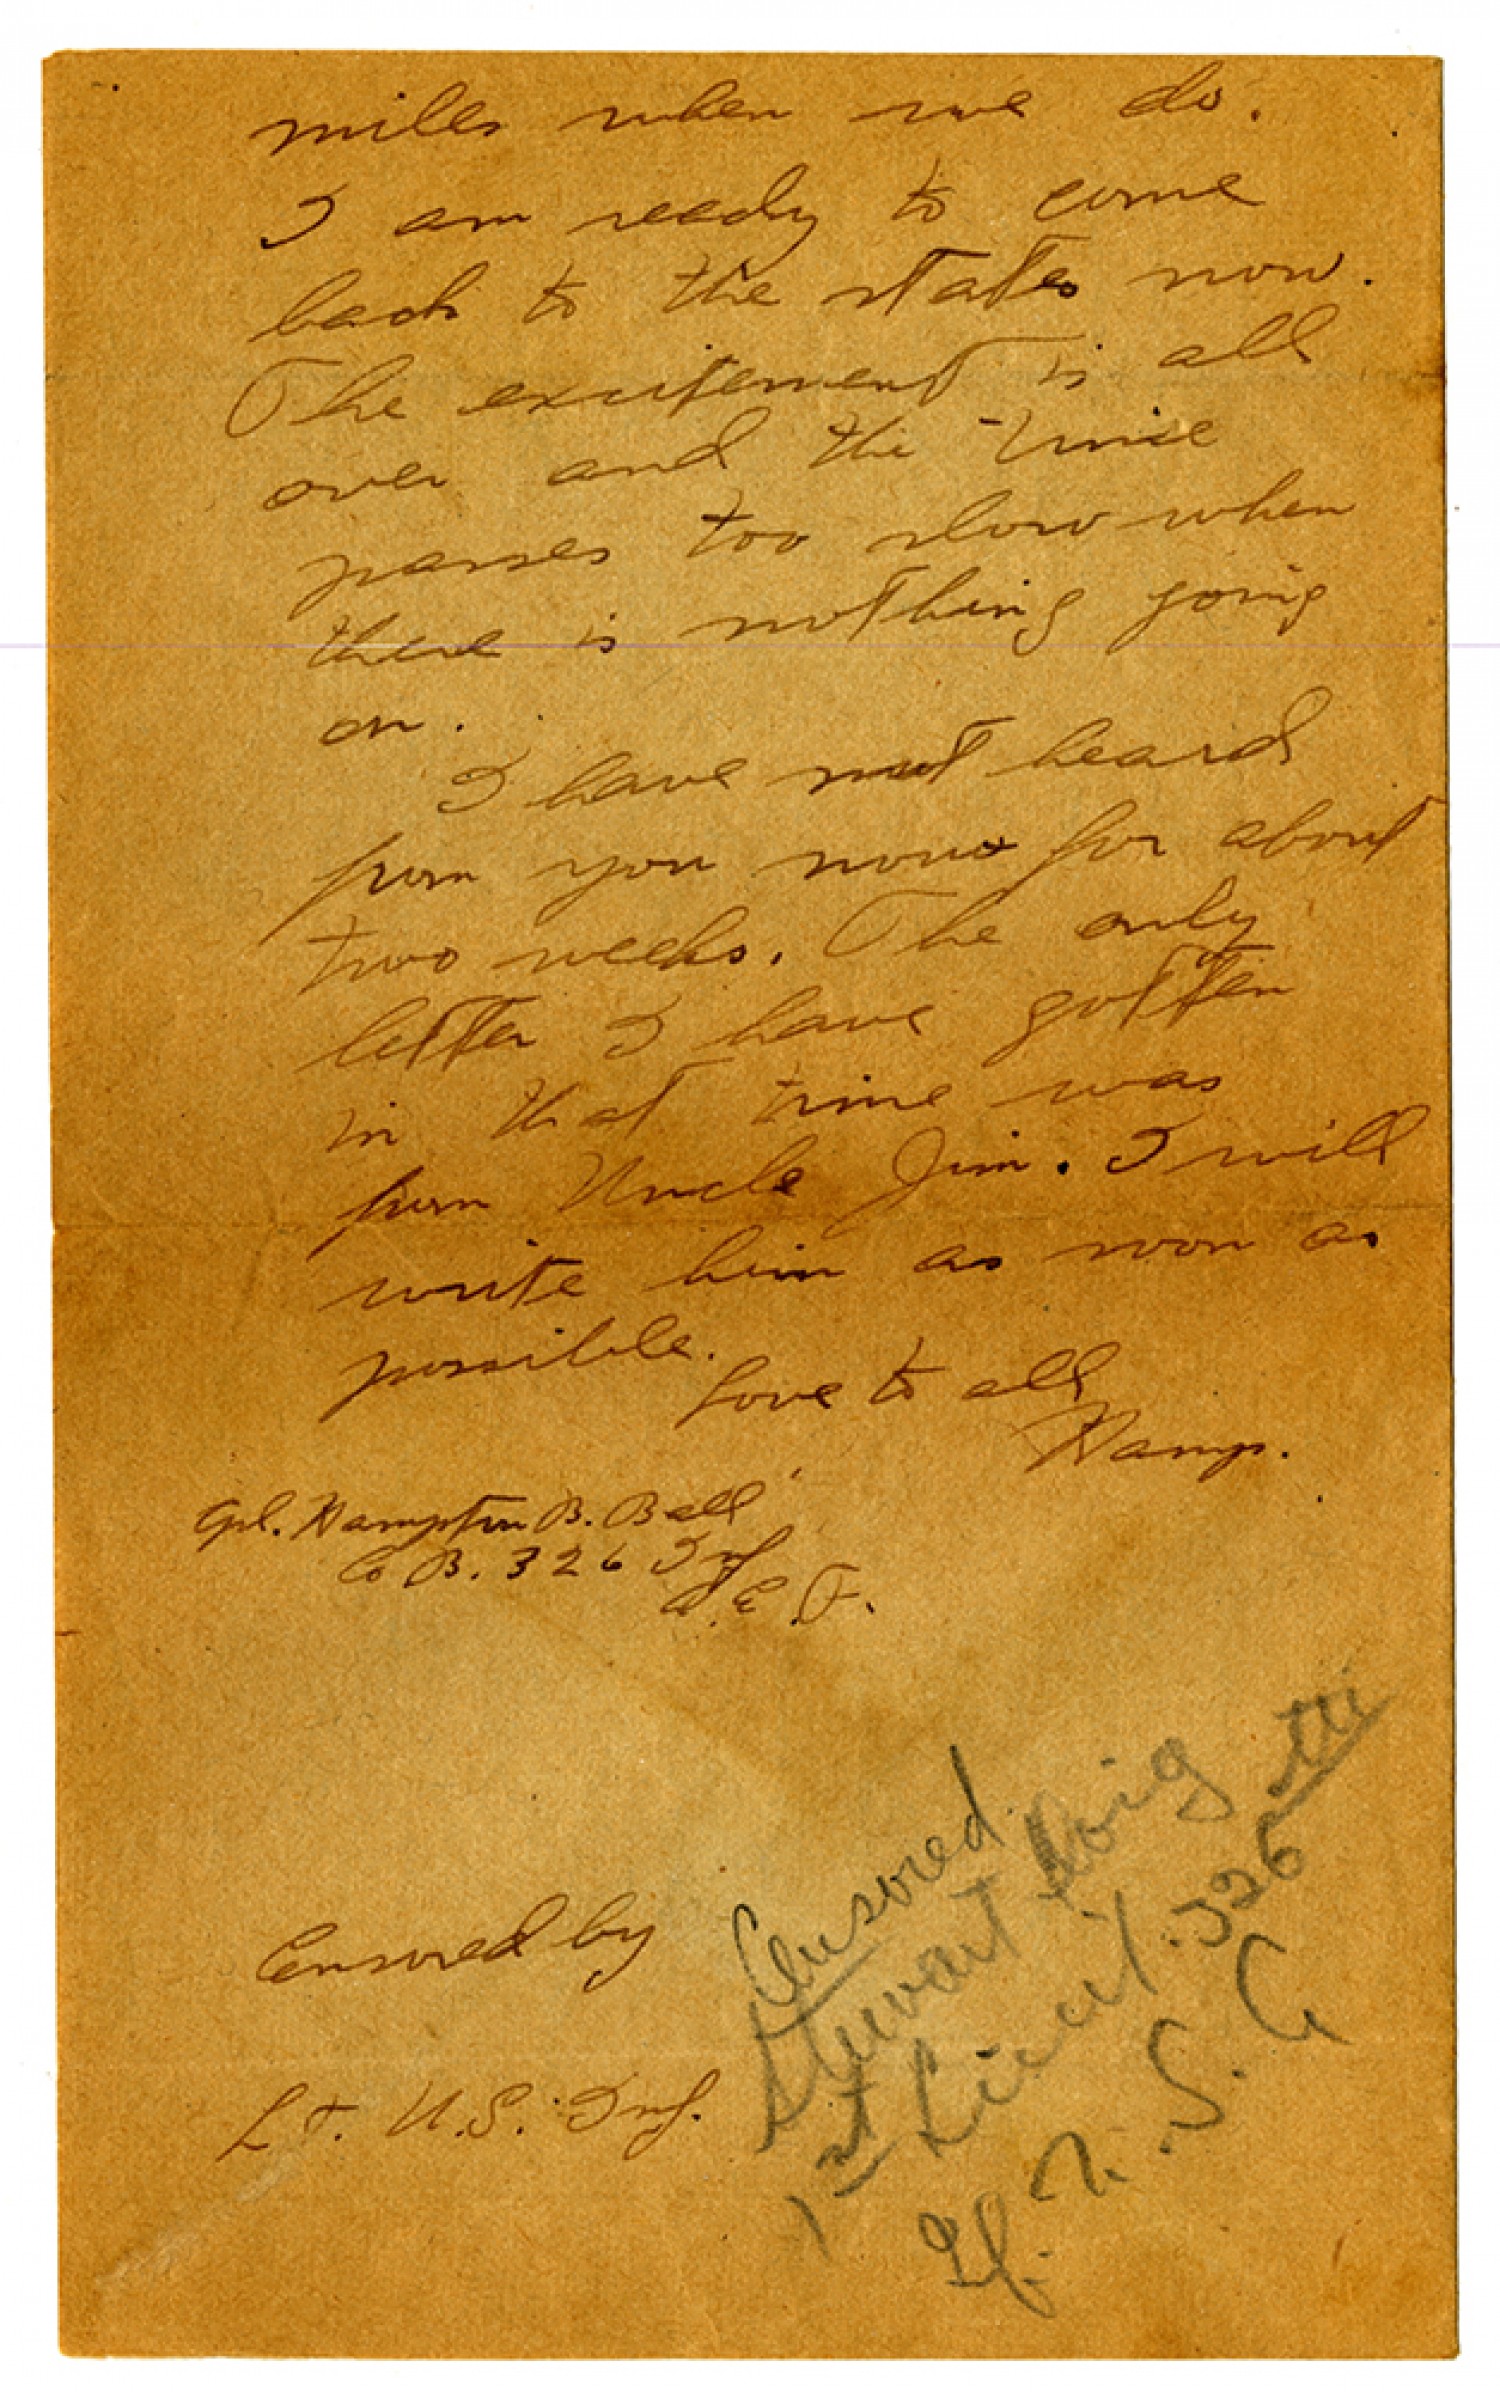 miles when we do.
I am ready to come
back to the states now.
The excitement is all
over and the time
passes too slow when
there is nothing going
on.
I have not heard
from you now for about
two weeks. The only
letter I have gotten
in that time was
from Uncle Jim. I will
write him as soon as
possible.
Love to all
Hamp.
Cpl. Hampton B. Ball
Co B. 326 Inf
A.E.F.
Censored by
Lt. U.S. Inf.
Censored
Stewart
1st Lieut. 326th
Inf. U.S.A.